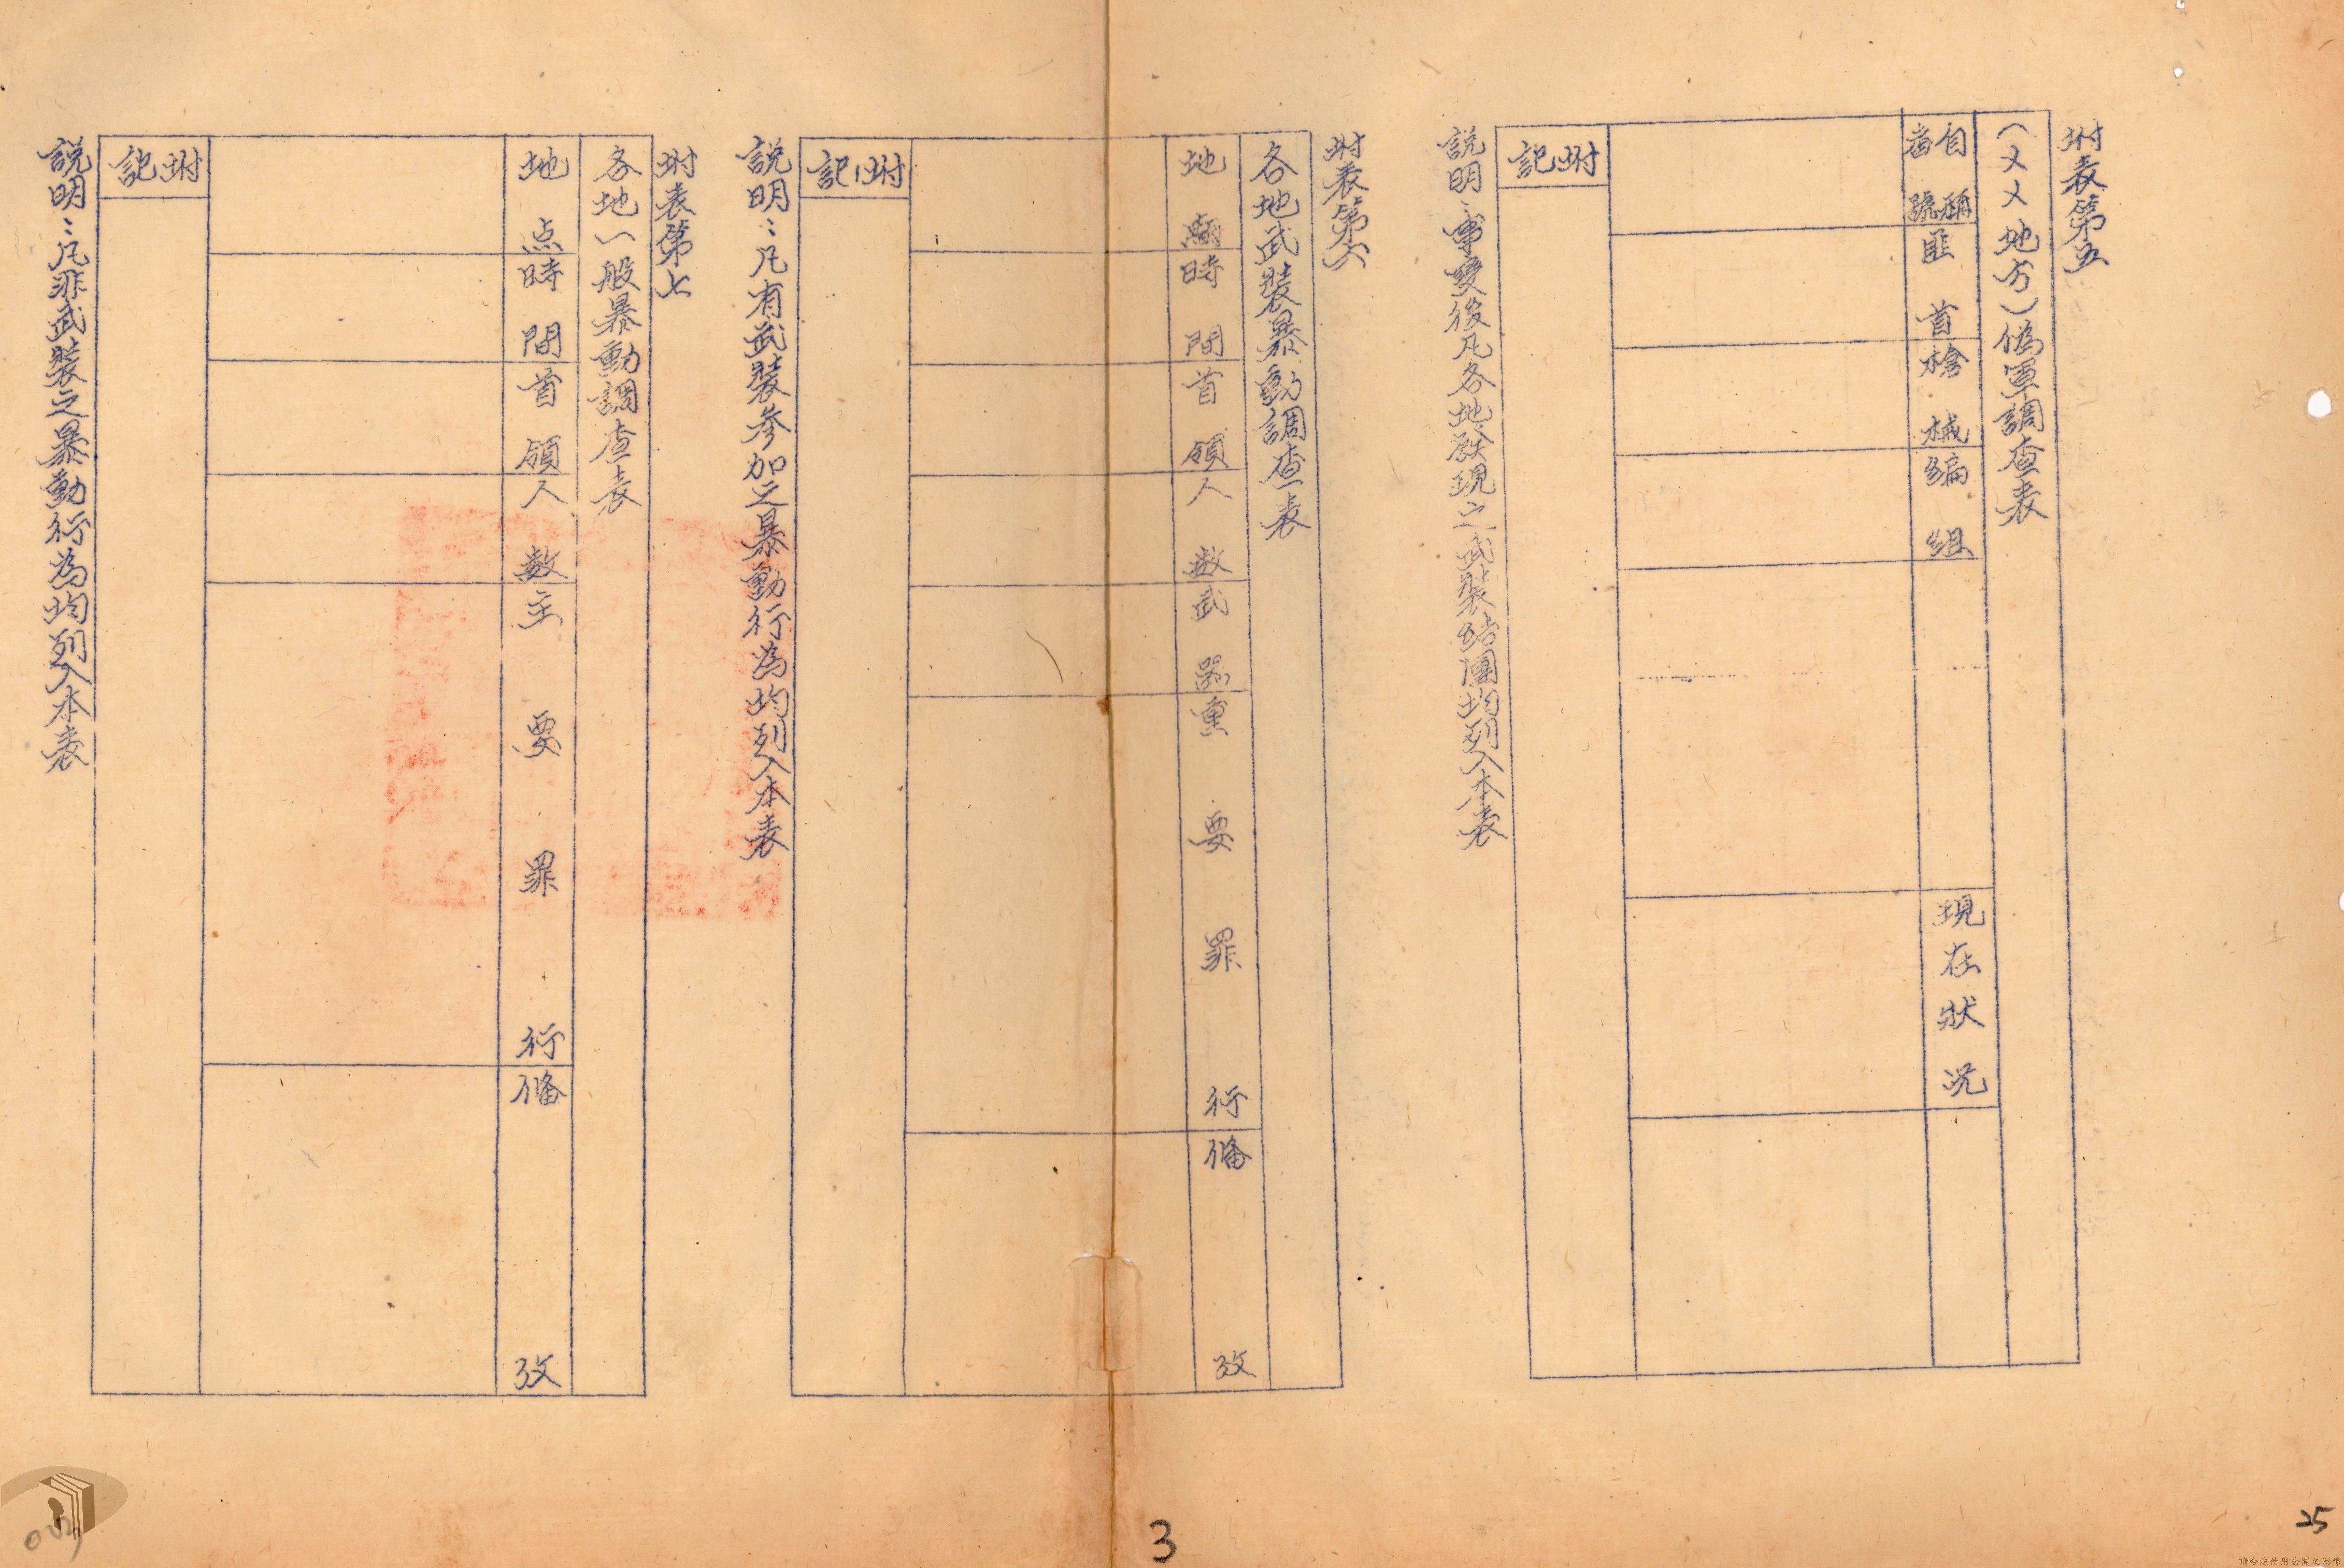 坿表第五
（乂乂地方）偽軍調查表
自稱番號
匪首
槍械
編組
現在狀況
坿記
說明：事變後凡各地發現之武裝結團均列入本表
坿表第六
各地武裝暴動調查表
地點
時間
首領
人数
武器
重要罪行
備攷
坿記
說明：凡有武裝參加之暴動行為均列入本表
坿表第七
各地一般暴動調查表
地点
時間
首領
人数
主要罪行
備攷
坿記
說明：凡非武裝之暴動行為均列入本表
3
25
請合法使用公開之影像